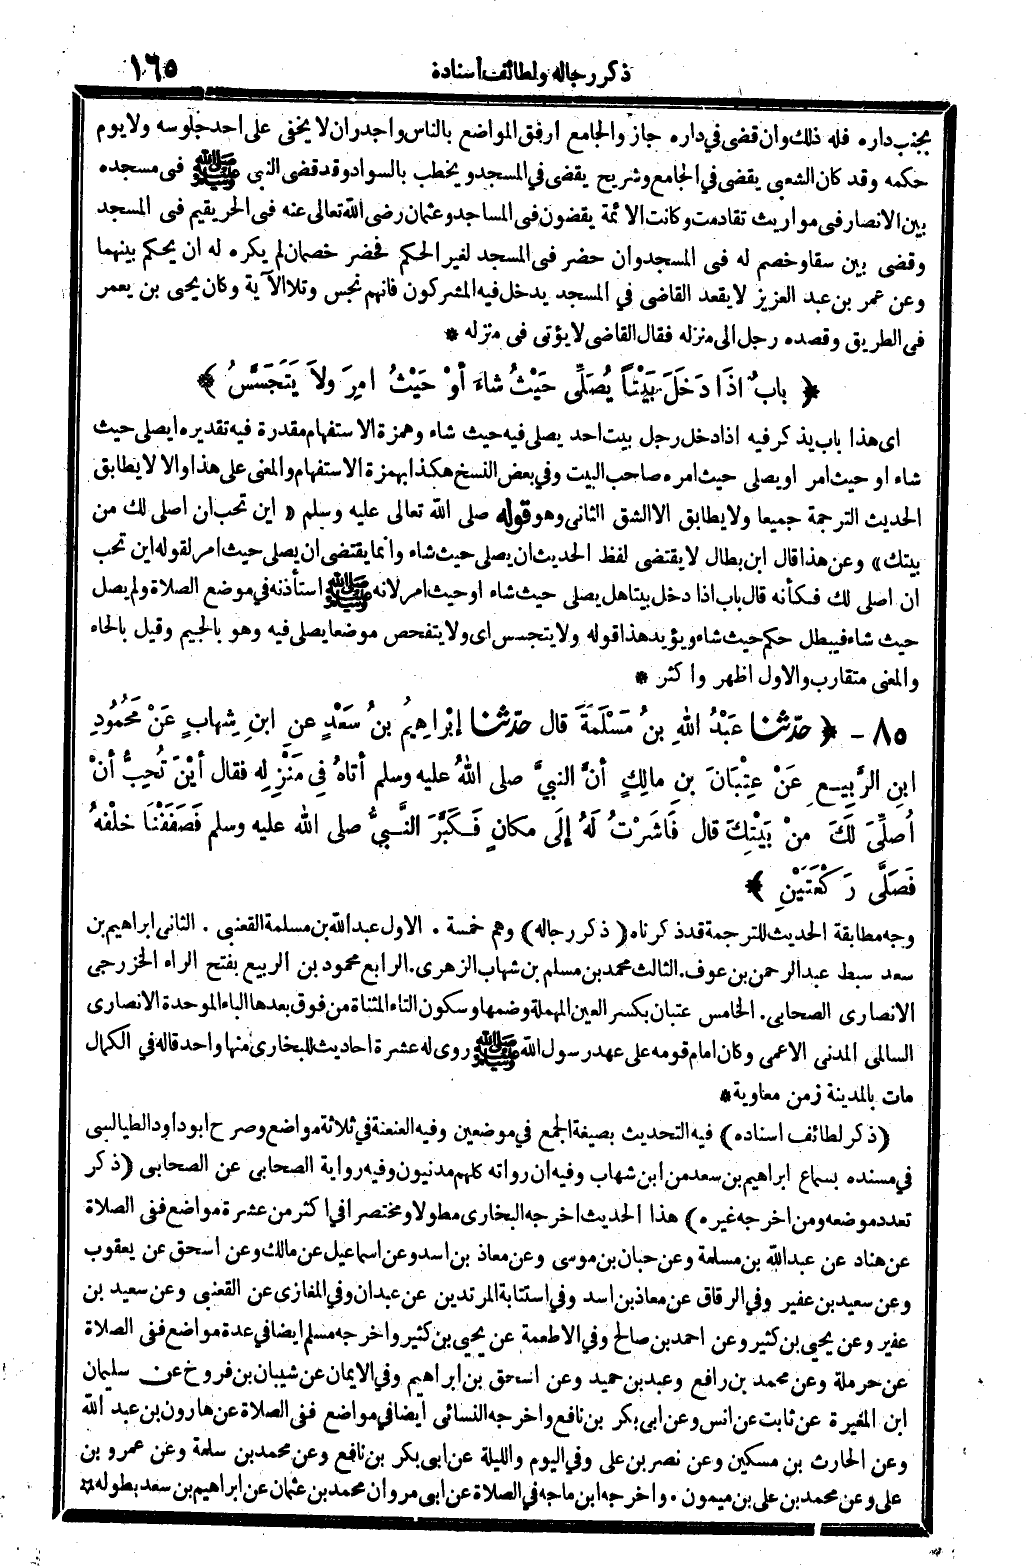 ذكر رجاله ولطائف أسنادة ١٦٥
بجذب داره فله ذلك وان قضى في داره جاز والجامع ارفق المواضع بالناس واجدر ان لا يخفى على احد جلوسه ولا يوم
حكمه وقد كان الشعبى يقضى في الجامع وشريح يقضى في المسجد ويخطب بالسواد وقد قضى النبى ﷺ فى مسجده
بين الانصار فى مواريث تقادمت وكانت الائمة يقضون فى المساجد وعثمان رضى الله تعالى عنه فى الحر يقيم فى المسجد
وقضى بين سقا وخصم له فى المسجد وان حضر فى المسجد لغير الحكم فحضر خصمان لم يكره له ان يحكم بينهما
وعن عمر بن عبد العزيز لا يقعد القاضى في المسجد يدخل فيه المشركون فانهم نجس وتلا الآية وكان يحيى بن يعمر
فى الطريق وقصده رجل الى منزله فقال القاضى لا يؤتى فى منزله *
﴿ بابٌ اذَا دَخَلَ بَيْتًا يُصَلِّى حَيْثُ شاءَ أوْ حَيْثُ امِرَ ولاَ يَتَجَسَّسُ ﴾
اى هذا باب يذكر فيه اذا دخل رجل بيت احد يصلى فيه حيث شاء وهمزة الاستفهام مقدرة فيه تقديره ايصلى حيث
شاء او حيث امر او يصلى حيث امره صاحب البيت وفي بعض النسخ هكذا بهمزة الاستفهام والمعنى على هذا والا لا يطابق
الحديث الترجمة جميعا ولا يطابق الا الشق الثانى وهو قوله صلى الله تعالى عليه وسلم « اين تحب أن اصلى لك من
بيتك» وعن هذا قال ابن بطال لا يقتضى لفظ الحديث ان يصلى حيث شاء وانما يقتضى ان يصلى حيث امر لقوله اين تحب
ان اصلى لك فكأنه قال باب اذا دخل بيتا هل يصلى حيث شاء او حيث امر لانه ﷺ استأذنه في موضع الصلاة ولم يصل
حيث شاء فيبطل حكم حيث شاء ويؤيد هذا قوله ولا يتجسس اى ولا يتفحص موضعا يصلى فيه وهو بالجيم وقيل بالحاء
والمعنى متقارب والاول اظهر واكثر *
٨٥ - ﴿ حدّثنا عَبْدُ اللهِ بنُ مَسْلَمَةَ قال حدّثنا إبْراهِيمُ بنُ سَعْدٍ عنِ ابنِ شِهابٍ عَنْ مَحْمُودِ
ابنِ الرَّبِيعِ عَنْ عِتْبَانَ بنِ مالِكٍ أنَّ النبيَّ صلى اللهُ عليه وسلم أتاهُ فِي مَنْزِلِهِ فقال أيْنَ تُحِبُّ أنْ
أُصلِّىَ لَكَ منْ بَيْتِكَ قال فَاشَرْتُ لَهُ إلَى مكانٍ فَكَبَّرَ النَّبيُّ صلى الله عليه وسلم فَصَفَفْنَا خلفهُ
فَصَلَّى رَكْعَتَيْنِ ﴾
وجه مطابقة الحديث للترجمة قد ذكرناه (ذكر رجاله) وهم خمسة . الاول عبد الله بن مسلمة القعنبى . الثانى ابراهيم بن
سعد سبط عبد الرحمن بن عوف. الثالث محمد بن مسلم بن شهاب الزهرى. الرابع محمود بن الربيع بفتح الراء الخزرجى
الانصارى الصحابى. الخامس عتبان بكسر العين المهملة وضمها وسكون التاء المثناة من فوق بعدها الباء الموحدة الانصارى
السالمى المدنى الاعمى وكان امام قومه على عهد رسول الله ﷺ روى له عشرة احاديث للبخارى منها واحد قاله في الكمال
مات بالمدينة زمن معاوية*
(ذكر لطائف اسناده) فيه التحديث بصيغة الجمع في موضعين وفيه العنعنة في ثلاثة مواضع وصرح ابو داود الطيالسى
في مسنده بسماع ابراهيم بن سعد من ابن شهاب وفيه ان رواته كلهم مدنيون وفيه رواية الصحابى عن الصحابى (ذكر
تعدد موضعه ومن اخرجه غيره) هذا الحديث اخرجه البخارى مطولا ومختصرا في اكثر من عشرة مواضع ففى الصلاة
عن هناد عن عبد الله بن مسلمة وعن حبان بن موسى وعن معاذ بن اسد وعن اسماعيل عن مالك وعن اسحق عن يعقوب
وعن سعيد بن عفير وفي الرقاق عن معاذ بن اسد وفي استتابة المرتدين عن عبدان وفي المغازى عن القعنبى وعن سعيد بن
عفير وعن يحيى بن كثير وعن احمد بن صالح وفي الاطعمة عن يحيى بن كثير واخرجه مسلم ايضا في عدة مواضع ففى الصلاة
عن حرملة وعن محمد بن رافع وعبد بن حميد وعن اسحق بن ابراهيم وفي الايمان عن شيبان بن فروخ عن سليمان
ابن المغيرة عن ثابت عن انس وعن ابى بكر بن نافع واخرجه النسائى ايضا في مواضع ففى الصلاة عن هارون بن عبد الله
وعن الحارث بن مسكين وعن نصر بن على وفي اليوم والليلة عن ابى بكر بن نافع وعن محمد بن سلمة وعن عمرو بن
على وعن محمد بن على بن ميمون . واخرجه ابن ماجه في الصلاة عن ابى مروان محمد بن عثمان عن ابراهيم بن سعد بطوله *